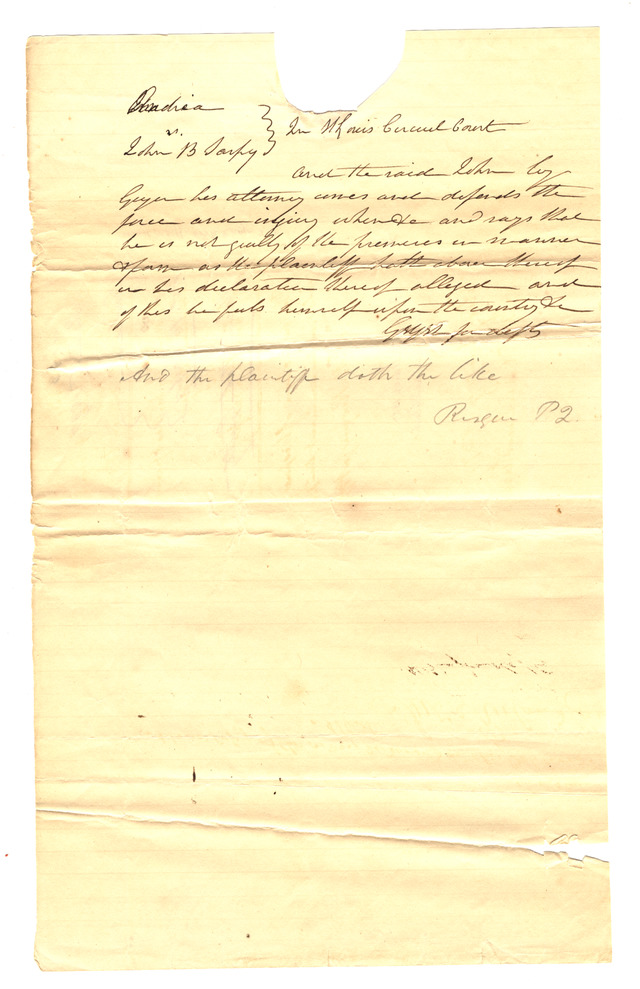 vs } In St Louis Circuit Court
John B Sarpy
And the said John by
Geyer his attorney comes and defends the
force and injury when &c and says that
he is not guilty of the premises in manner
& form as the plaintiff hath above thereof
in his declaration thereof alleged and
of this he puts himself upon the country &c
Geyer for deft
And the plaintiff doth the like
Risque P2.